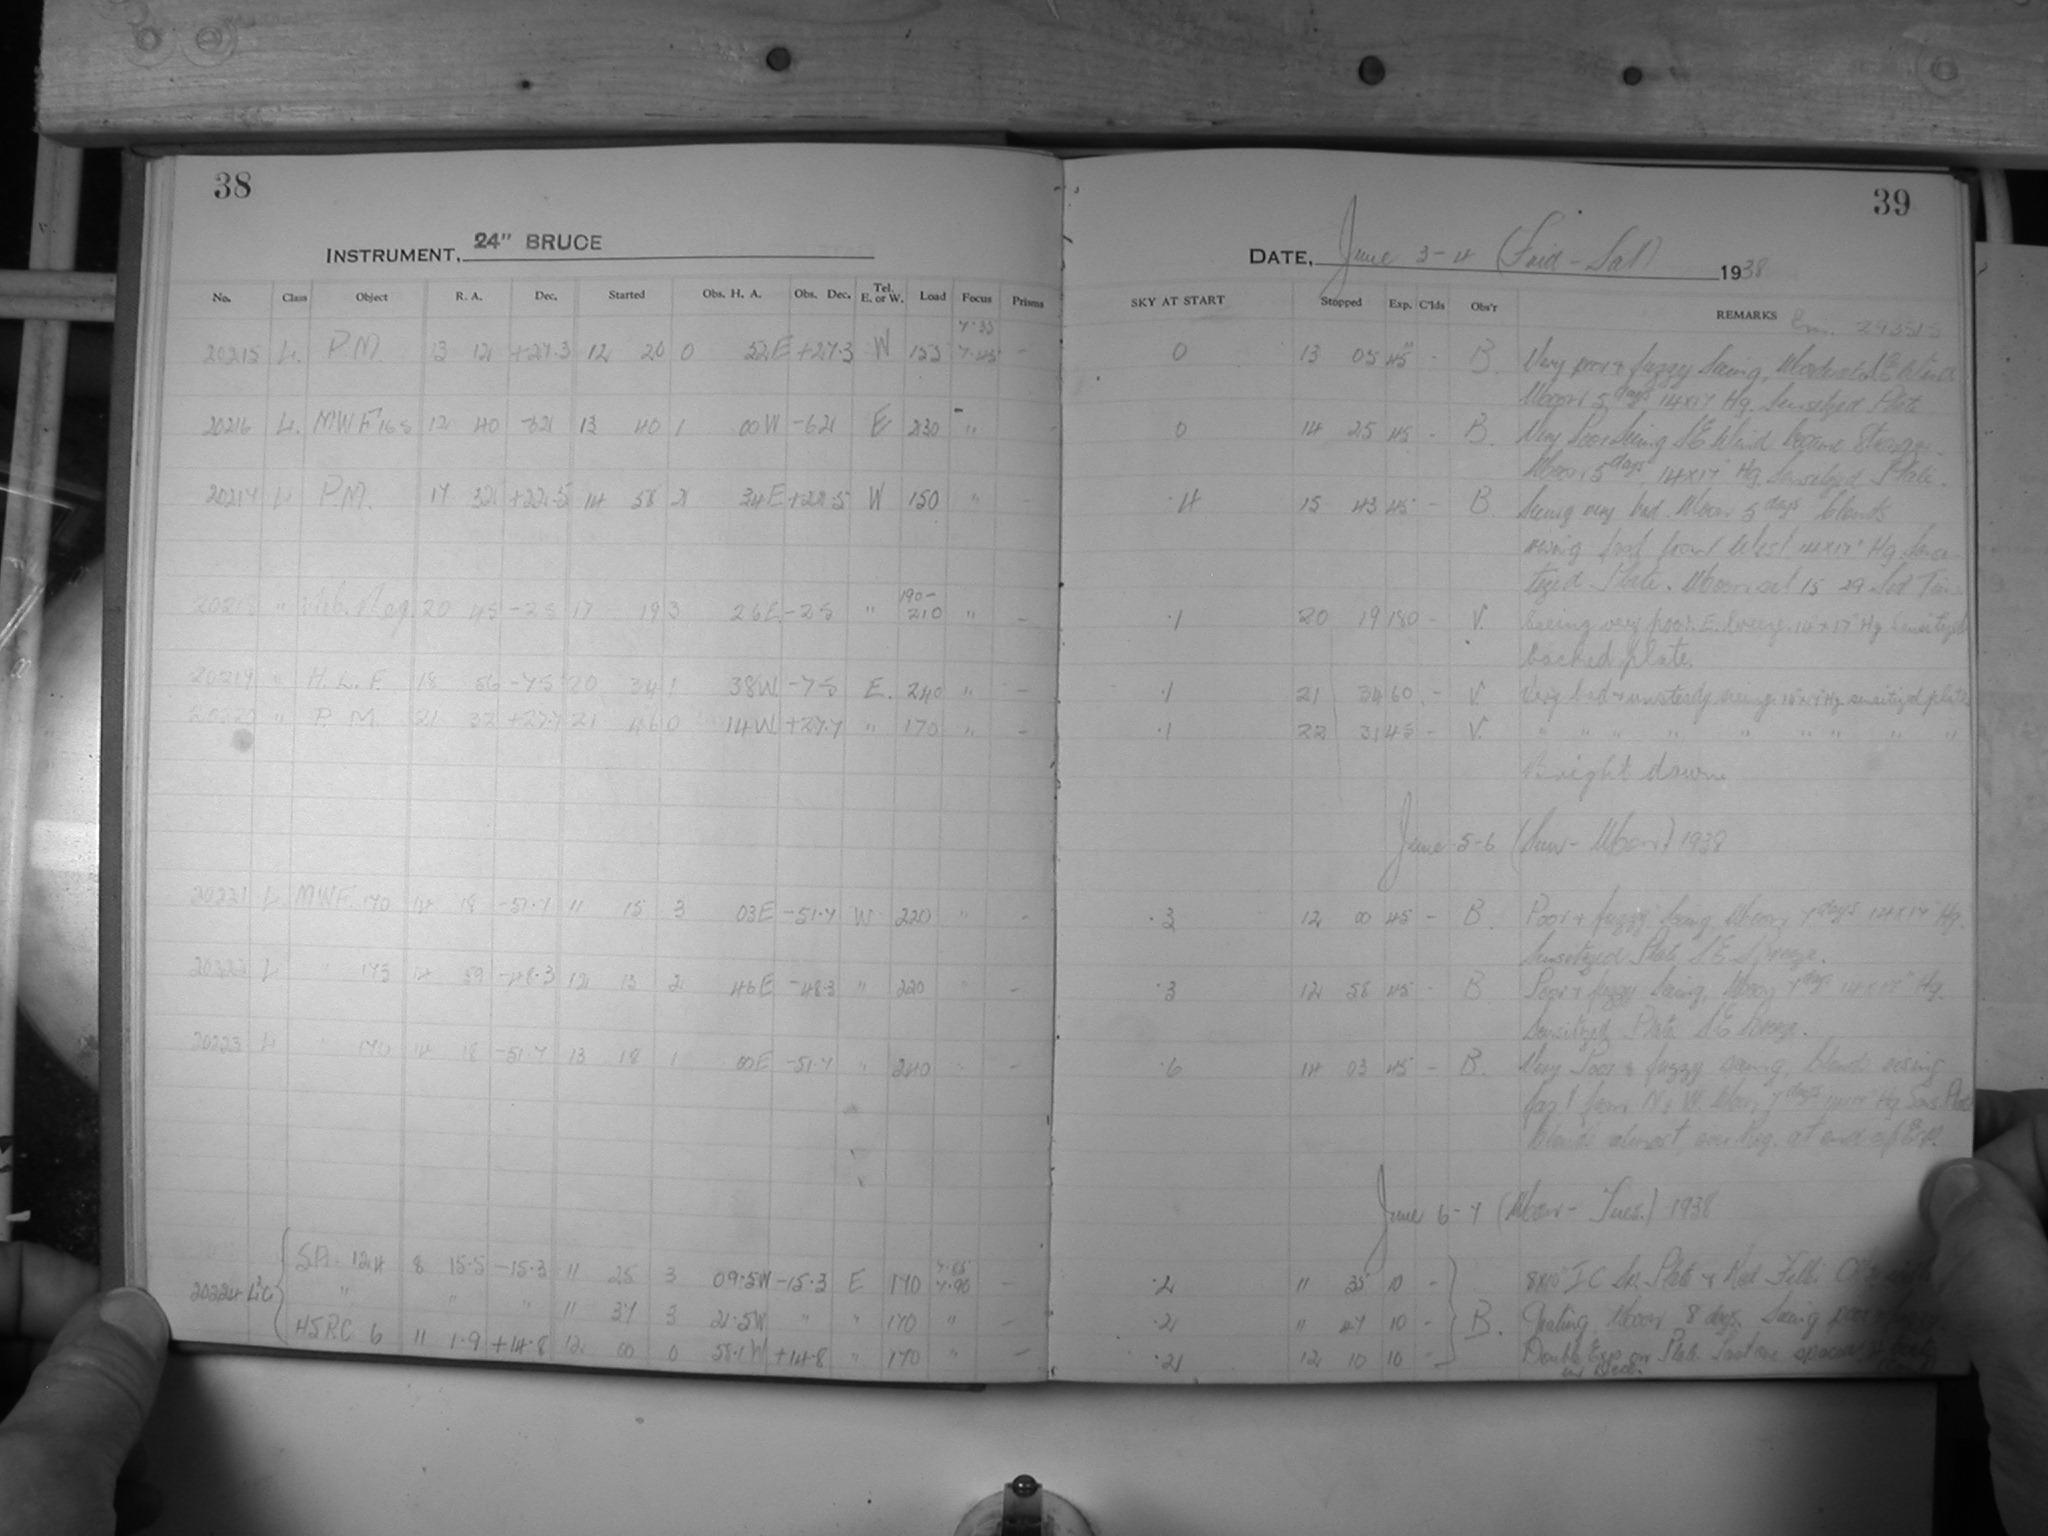 38
INSTRUMENT, 24" BRUCE
No. Class Object R. A. Dec. Started Obs. H. A. Obs. Dec. Tel. E. or W. Load Focus Prisms
7.35
20215 L. P.M. 13 12 +27.3 12 20 0 52E +27.3 W 155 7.45 -
20216 L. MWF 168 12 40 -62 13 40 1 00W -62 E 230 "
20217 L P.M. 17 32 +22.5 14 58 2 34E +22.5 W 150 " -
190-
20218 " 20 45 -25 17 19 3 26E -25 " 210 " -
20219 " H.L.F. 18 56 -75 20 34 1 38W -75 E. 240 " -
20220 " P.M. 21 32 +27.7 21 46 0 14W +27.7 " 170 " -
20221 L MWF 170 14 18 -51.7 11 15 3 03E -51.7 W 220 " -
20222 L " 175 14 59 -48.3 12 13 2 46E -48.3 " 220 " -
20223 L " 170 14 18 -51.7 13 18 1 00E -51.7 " 240 " -
SA. 124 8 15.5 -15.3 11 25 3 09.5W -15.3 E 170 7.90 -
20224 " " " 11 37 3 21.5W " " 170 " -
HSRC 6 11 1.9 +14.8 12 00 0 58.1W +14.8 " 170 " -
39
DATE, June 3-4 (Frid-Sat) 1938
SKY AT START Stopped Exp. C'lds Obs'r REMARKS
0 13 05 45 - B. Very poor & fuzzy Seeing, Moderate SE Wind
Moon 5 days 14x17 Hg. Sensitized Plate
0 14 25 45 - B. Very Poor Seeing SE Wind became Stronger.
Moon 5 days, 14x17" Hg. Sensitized Plate.
.4 15 43 45 - B. Seeing very bad. Moon 5 days Clouds
rising fast from West 14x17" Hg. Sensi-
tized Plate. Moon set 15 29
.1 20 19 180 - V. Seeing very poor. E. breeze. 14x17" Hg Sensitized
backed plate.
.1 21 34 60 - V. Very bad & unsteady seeing. 14"x17" Hg sensitized plate
.1 22 31 45 - V. " " " " " " " " "
Bright dawn
June 5-6 (Sun-Mon) 1938
.3 12 00 45 - B. Poor & fuzzy Seeing, Moon 7 days 14x17" Hg.
Sensitized Plate SE Breeze.
.3 12 58 45 - B Poor & fuzzy Seeing, Moon 7 days 14x17" Hg.
Sensitized Plate SE Breeze.
.6 14 03 45 - B. Very Poor & fuzzy seeing, Clouds rising
fast from N & W. Moon 7 days 14x17" Hg Sens. Plate
Clouds almost at end of Exp.
June 6-7 (Mon-Tues.) 1938
.2 11 35 10 - 8x10" IC Sp. Plate & Red Filter
.2 " 47 10 - B. Grating, Moon 8 days. Seeing poor & fuzzy
.2 12 10 10 - Double Exp on Plate. Last one spaced
in Decl.